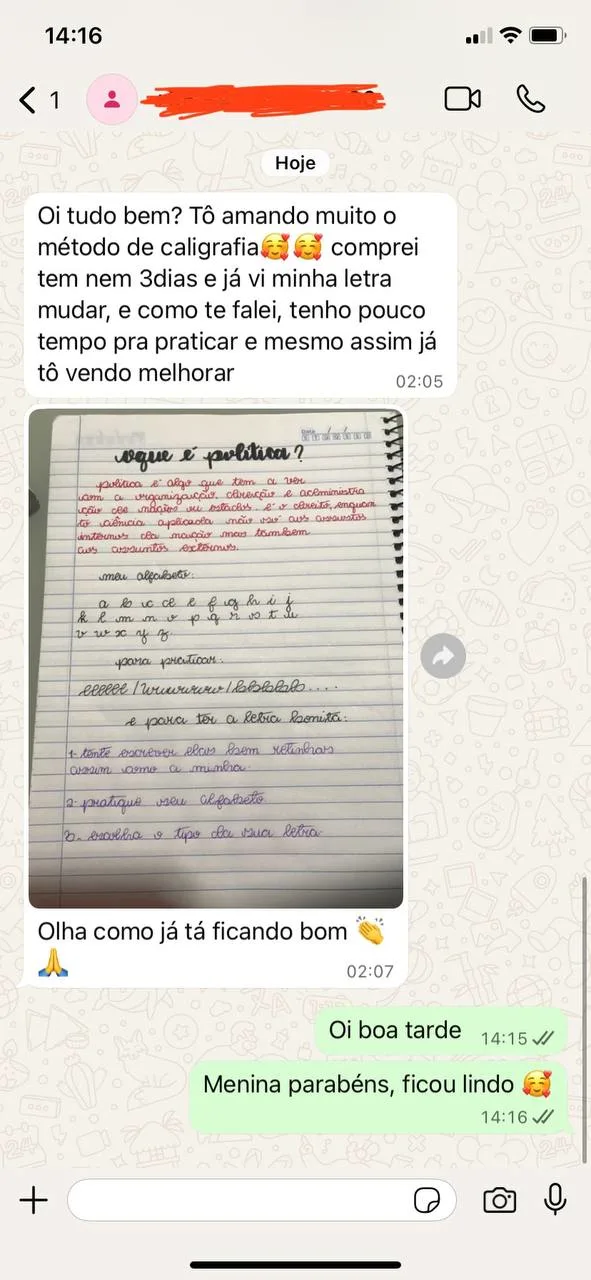 14:16
1
Hoje
Oi tudo bem? Tô amando muito o
método de caligrafia🥰🥰 comprei
tem nem 3dias e já vi minha letra
mudar, e como te falei, tenho pouco
tempo pra praticar e mesmo assim já
tô vendo melhorar
02:05
oque é política?
política é algo que tem a ver
com a organização, direcção e administra
ção de nações ou estados. é o direito, enquan
to ciência aplicada não só aos assuntos
internos da nação mas também
aos assuntos externos.
meu alfabeto:
a b c d e f g h i j
k l m n o p q r s t u
v w x y z
para praticar.
e para ter a letra bonita:
1- tente escrever elas bem retinhas
assim como a minha.
2- pratique seu alfabeto
3- escolha o tipo da sua letra
Olha como já tá ficando bom 👏
🙏
02:07
Oi boa tarde
14:15
Menina parabéns, ficou lindo 🥰
14:16